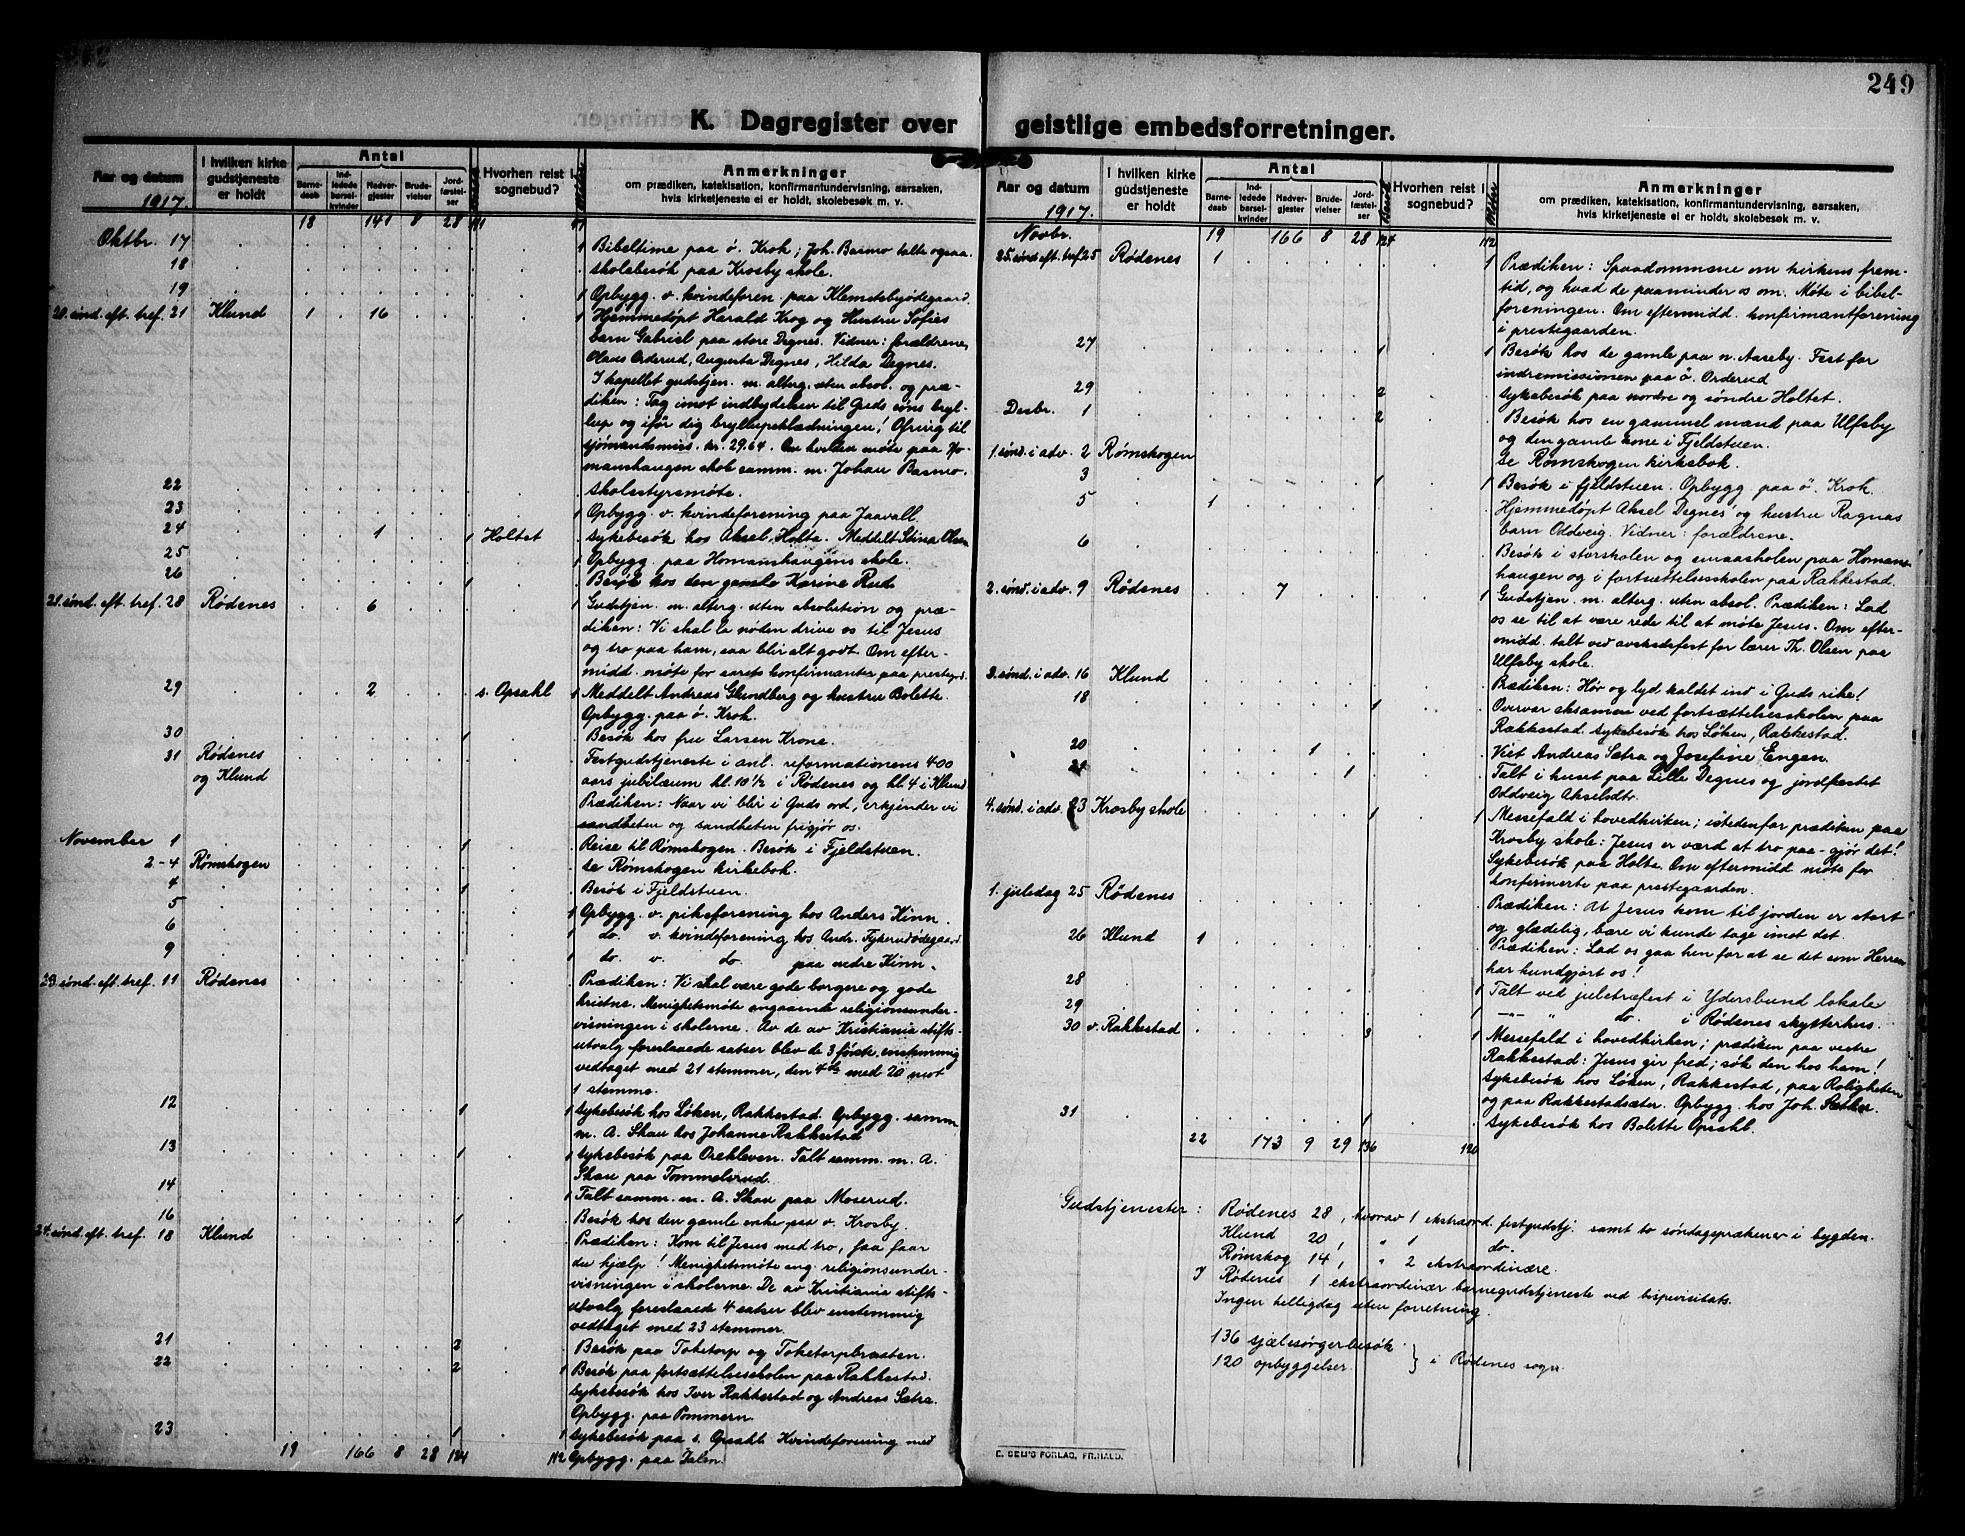 249
K. Dagregister over geistlige embedsforretninger.
Aar og datum
1917.
I hvilken kirke gudstjeneste er holdt
Antal
Barnedaab
Indledede barselkvinder
Nadvergjester
Brudevielser
Jordfæstelser
Hvorhen reist i sognebud?
Anmerkninger
om prædiken, katekisation, konfirmantundervisning, aarsaken, hvis kirketjeneste ei er holdt, skolebesøk m. v.
18 141 8 28
Oktbr. 17 1 Bibeltime paa ö. Krok; Joh. Basmo talte ogsaa.
18 Skolebesök paa Krosby skole.
19 1 Opbygg. v. kvindeforen. paa Klemetsbyødegaard.
20. sönd. eft. tref. 21 Klund 1 16 1 Hjemmedöpt Harald Krog og Hustru Sofies
barn Gabriel paa store Degnes. Vidner: forældrene,
Olaus Orderud, Augusta Degnes, Hilda Degnes.
I kapellet gudstjen. m. alterg. uten absol. og præ-
diken: Tag imot indbydelsen til Guds söns bryl-
lup og ifør dig bryllupsklædningen! Ofring til
sjömandsmiss. kr. 29,64. Om kvelden möte paa Ho-
manshaugen skole samm. m. Johan Basmo.
22 Skolestyrsmöte.
23 1 Opbygg. v. kvindeforening paa Jaavall.
24 1 1 Holtet Sykebesök hos Aksel Holta. Meddelt Stina Olsen
25 1 Opbygg. paa Homanshaugens skole.
26 1 Besök hos den gamle Karine Rud.
21. sönd. eft. tref. 28 Rödenes 6 1 Gudstjen. m. alterg. uten absolution og præ-
diken: Vi skal la nöden drive os til Jesus
og tro paa ham, saa blir alt godt. Om efter-
midd. möte for aarets konfirmanter paa prestegrd.
29 2 s. Opsahl 1 Meddelt Andreas Glendberg og hustru Bolette.
Opbygg. paa ö. Krok.
30 1 Besök hos fru Larsen Krone.
31 Rödenes og Klund Festgudstjeneste i anl. reformationens 400
aars jubilæum kl. 10½ i Rödenes og kl. 4 i Klund
Prædiken: Naar vi blir i Guds ord, erkjender vi
sandheten og sandheten frigjör os.
November 1 1 Reise til Römskogen. Besök i Fjeldstuen.
2-4 Römskogen Se Römskogen kirkebok.
4 1 Besök i Fjeldstuen.
5 1 Opbygg. v. pikeforening hos Anders Kinn.
6 1 do. v. kvindeforening hos Andr. Tykerudødegaard
9 1 do. v. do. paa nedre Kinn.
23. sönd. eft. tref. 11 Rödenes Prædiken: Vi skal være gode borgere og gode
kristne. Menighetsmöte angaaende religionsunder-
visningen i skolerne. Av de av Kristiania stifts-
utvalg foreslaaede satser blev de 3 förste enstemmig
vedtaget med 21 stemmer, den 4de med 20 mot
1 stemme.
12 1 1 Sykebesök hos Löken, Rakkestad. Opbygg. samm
m. A. Skau hos Johanne Rakkestad
13 1 1 Sykebesök paa Orekleven. Talt samm. m. A.
Skau paa Tommelsrud.
14 1 Talt samm. m. A. Skau paa Moserud.
16 1 Besök hos den gamle enke paa v. Krosby.
24. sönd. eft. tref. 18 Klund Prædiken: Kom til Jesus med tro, saa faar
du hjælp! Menighetsmöte ang. religionsunder-
visningen i skolerne. De av Kristiania stifts-
utvalg foreslaaede 4 satser blev enstemmig
vedtaget med 23 stemmer.
21 2 Besök paa Toketorp og Toketorpbraaten.
22 2 1 Besök paa fortsættelseskolen paa Rakkestad.
Sykebesök hos Iver Rakkestad og Andreas Sætra.
Opbygg. paa Pommern.
23 1 1 Sykebesök paa s. Opsahl. Kvindeforening med
19 166 8 28 124 112 Opbygg. paa Dalen.
Aar og datum
1917.
I hvilken kirke gudstjeneste er holdt
Antal
Barnedaab
Indledede barselkvinder
Nadvergjester
Brudevielser
Jordfæstelser
Hvorhen reist i sognebud?
Anmerkninger
om prædiken, katekisation, konfirmantundervisning, aarsaken, hvis kirketjeneste ei er holdt, skolebesøk m. v.
Novbr. 19 166 8 28 124 112
25. sönd. eft. tref. 25 Rödenes 1 1 Prædiken: Spaadommene om kirkens frem-
tid, og hvad de paaminder os om. Möte i bibel-
foreningen. Om eftermidd. konfirmantforening
i prestegaarden.
27 1 1 Besök hos de gamle paa n. Aaseby. Fest for
indremissionen paa ö. Orderud
29 2 Sykebesök paa nordre og söndre Holtet.
Desbr. 1 2 Besök hos en gammel mand paa Ulfsby
og den gamle kone i Fjeldstuen.
1. sönd. i adv. 2 Römskogen Se Römskogen kirkebok.
3 1 1 Besök i fjeldstuen. Opbygg. paa ö. Krok.
5 1 Hjemmedöpt Aksel Degnes' og hustru Ragnas
barn Oddveig. Vidner: forældrene.
6 Besök i storskolen og smaaskolen paa Homans-
haugen og i fortsættelsesskolen paa Rakkestad.
2. sönd. i adv. 9 Rödenes 7 1 Gudstjen. m. alterg. uten absol. Prædiken: Lad
os se til at være rede til at möte Jesus. Om efter-
midd. talt ved avskedsfest for lærer Th. Olsen paa
Ulfsby skole.
3. sönd. i adv. 16 Klund Prædiken: Hör og lyd kaldet ind i Guds rike!
18 1 Overvar eksamen ved fortsættelsesskolen paa
Rakkestad. Sykebesök hos Löken, Rakkestad.
20 1 Viet Andreas Sætra og Josefine Engen.
21 1 Talt i huset paa Lille Degnes og jordfestet
Oddveig Akselsdtr.
4. sönd. i adv. 23 Krosby skole 1 1 Messefald i hovedkirken; istedenfor prædiken paa
Krosby skole: Jesus er værd at tro paa - gjör det!
Sykebesök paa Holta. Om eftermidd möte for
konfirmerte paa prestegaarden.
1. juledag 25 Rödenes Prædiken: At Jesus kom til jorden er stort
og glædelig, bare vi kunde tage imot det.
26 Klund 1 Prædiken: Lad os gaa hen for at se det som Herren
har kundgjort os!
28 1 Talt ved juletræfest i Ydersbund lokale
29 1 -"- " do. i Rödenes skytterhus.
30 v. Rakkestad 3 1 Messefald i hovedkirken; prædiken paa vestre
Rakkestad: Jesus gir fred; sök den hos ham!
Sykebesök hos Löken, Rakkestad, paa Roligheten
og paa Rakkestadsæter. Opbygg. hos Joh. Sætker.
31 1 Sykebesök hos Bolette Opsahl.
22 173 9 29 136 120
Gudstjenester: Rödenes 28, hvorav 1 ekstraord. festgudstj. samt to söndagsprækener i bygden.
Klund 20, " 1 do.
Römskog 14, " 2 ekstraordinære.
I Rödenes 1 ekstraordinær barnegudstjeneste ved bispevisitats.
Ingen helligdag uten forretning.
136 sjælesörgerbesök
120 opbyggelser } i Rödenes sogn
E. SEM'S FORLAG, FR.HALD.